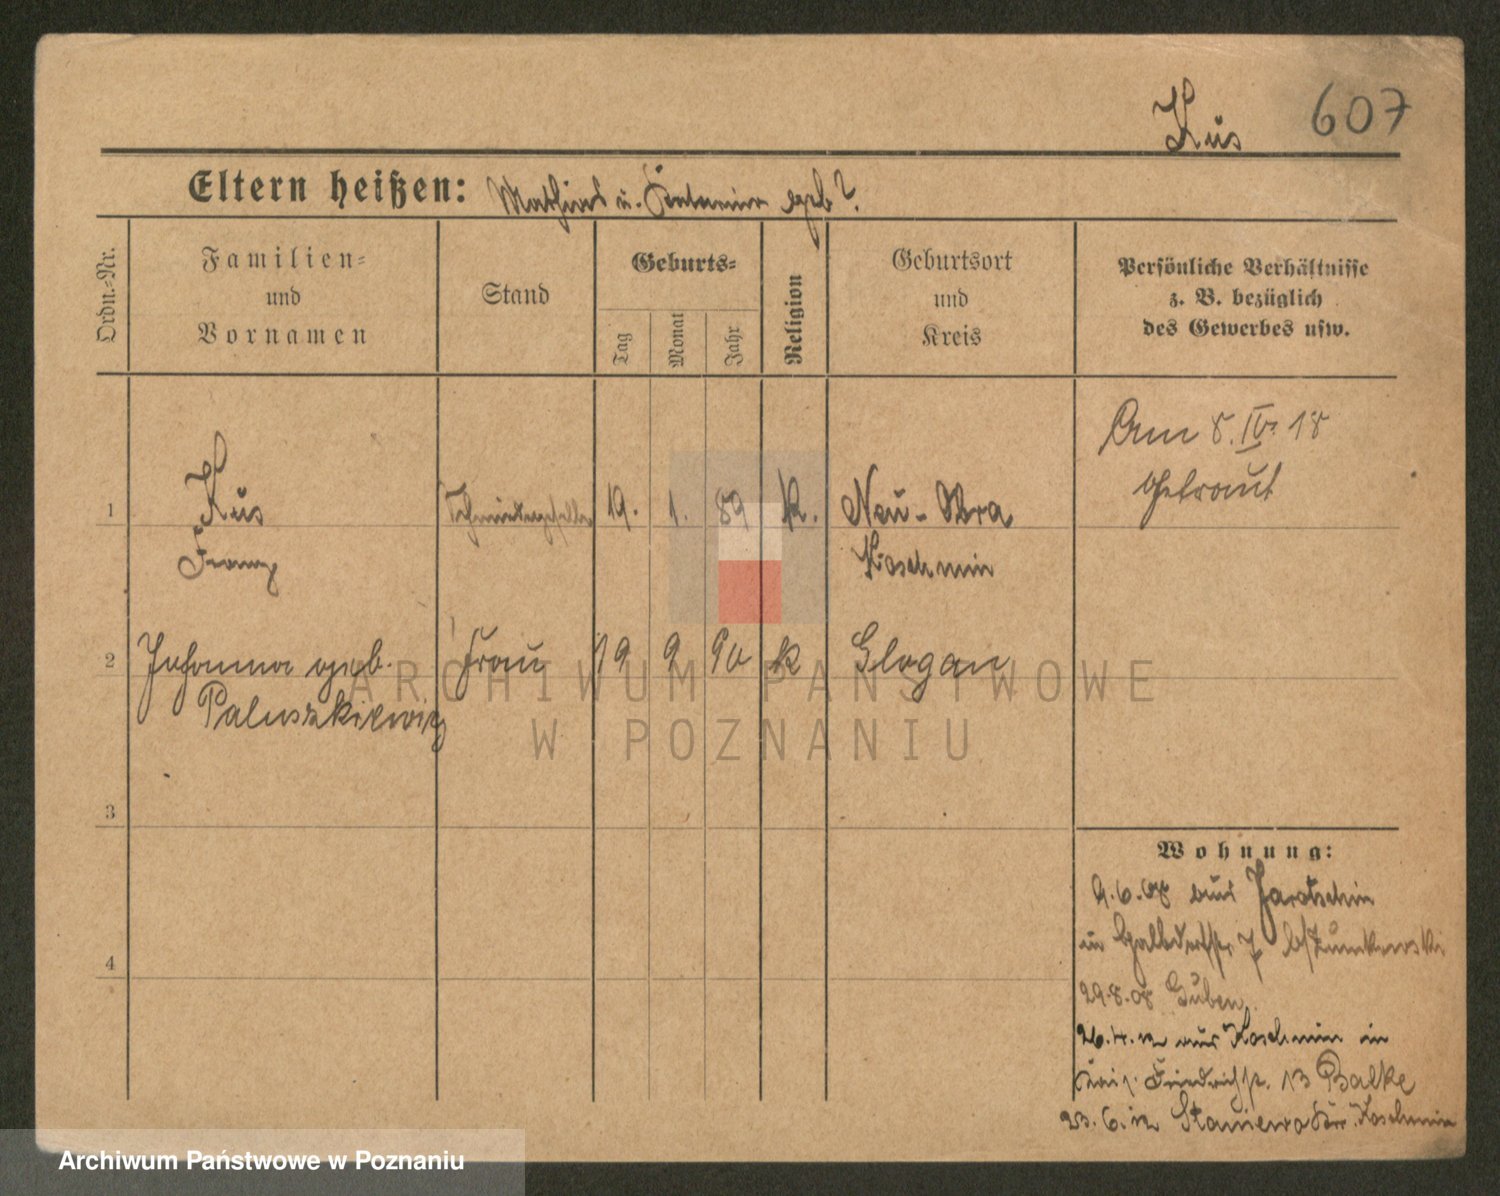 Kus 607
Eltern heißen: Mathias u. geb ?.
Ordn.-Nr.
Familien-
und
Vornamen
Stand
Geburts-
Tag
Monat
Jahr
Religion
Geburtsort
und
Kreis
Persönliche Verhältnisse
z. B. bezüglich
des Gewerbes usw.
Am 8. IV. 18
getraut
1 Kus Schmiedegeselle 19. 1. 89 K. Neu-Obra
Franz Koschmin
2 Johanna geb. Frau 19 9 90 k Glogau
Paluszkiewicz
3
4
Wohnung:
9.6.08 aus Jarotschin
in 7 b/
29.8.08 Guben.
26.4.12 aus Koschmin in
Friedrichstr. 13 Balke
23.6.12 Staniewo Kr. Koschmin
ARCHIWUM PAŃSTWOWE
W POZNANIU
Archiwum Państwowe w Poznaniu